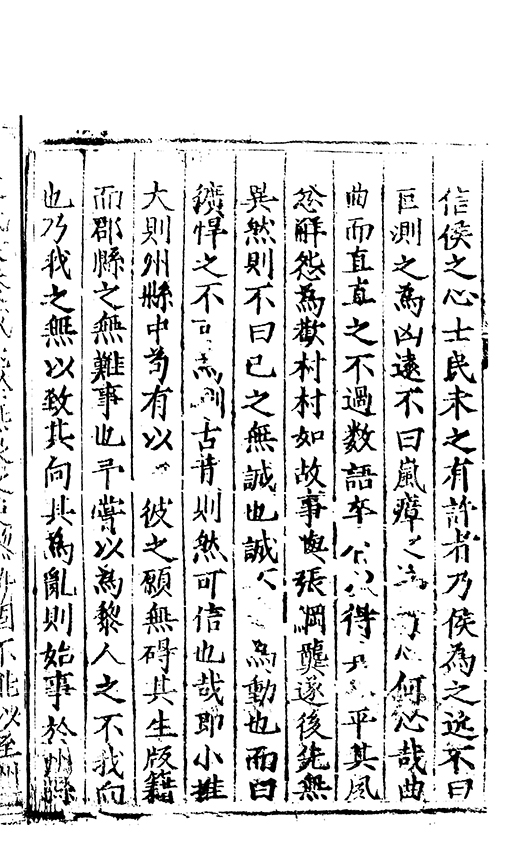 信侯之心士民未之有許者乃侯為之近不曰
巨測之為凶遠不曰嵐瘴之為何必哉曲
曲而直直之不過数語卒得平其風
忿解怨為歡村村如故事與張綱龔遂後先無
異然則不曰已之無誠也誠為動也而曰
獷悍之不可為則古昔則然可信也哉即小推
大則州縣中苟有以彼之願無碍其生版籍
而郡縣之無難事也予嘗以為黎人之不我向
也乃我之無以致其向其為亂則始事於州縣